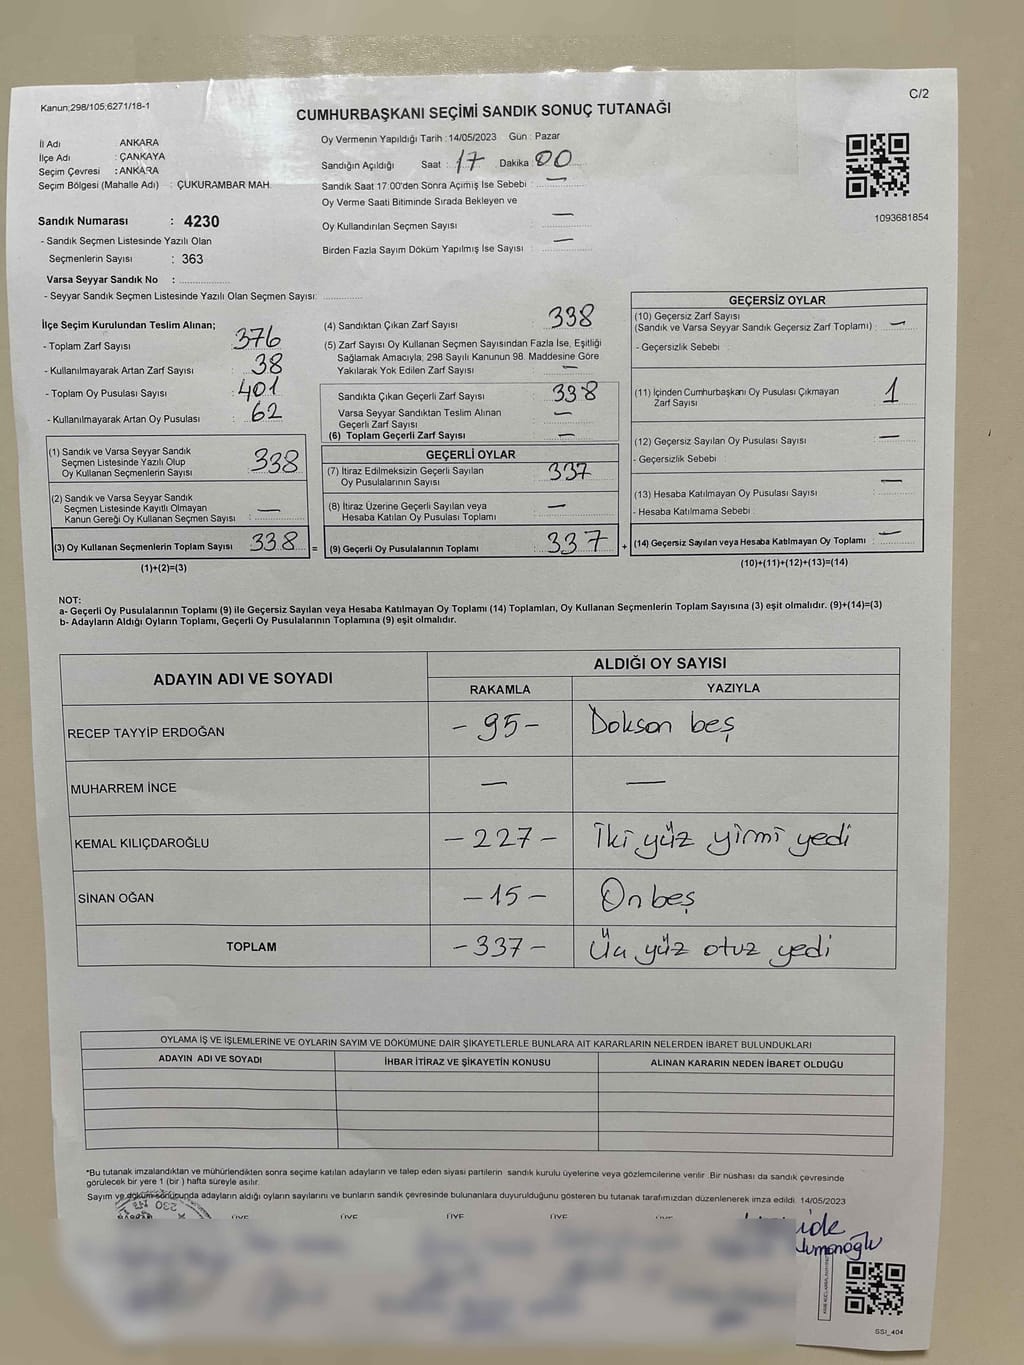 Kanun;298/105;6271/18-1
C/2
CUMHURBAŞKANI SEÇİMİ SANDIK SONUÇ TUTANAĞI
İl Adı ANKARA
İlçe Adı : ÇANKAYA
Seçim Çevresi : ANKARA
Seçim Bölgesi (Mahalle Adı) : ÇUKURAMBAR MAH.
Sandık Numarası : 4230
- Sandık Seçmen Listesinde Yazılı Olan
Seçmenlerin Sayısı : 363
Varsa Seyyar Sandık No :
- Seyyar Sandık Seçmen Listesinde Yazılı Olan Seçmen Sayısı:
Oy Vermenin Yapıldığı Tarih : 14/05/2023 Gün : Pazar
Sandığın Açıldığı Saat : 17 Dakika : 00
Sandık Saat 17:00'den Sonra Açımış İse Sebebi : —
Oy Verme Saati Bitiminde Sırada Bekleyen ve
Oy Kullandırılan Seçmen Sayısı —
Birden Fazla Sayım Döküm Yapılmış İse Sayısı —
1093681854
İlçe Seçim Kurulundan Teslim Alınan;
- Toplam Zarf Sayısı : 376
- Kullanılmayarak Artan Zarf Sayısı : 38
- Toplam Oy Pusulası Sayısı : 401
- Kullanılmayarak Artan Oy Pusulası : 62
(1) Sandık ve Varsa Seyyar Sandık
Seçmen Listesinde Yazılı Olup
Oy Kullanan Seçmenlerin Sayısı : 338
(2) Sandık ve Varsa Seyyar Sandık
Seçmen Listesinde Kayıtlı Olmayan
Kanun Gereği Oy Kullanan Seçmen Sayısı : —
(3) Oy Kullanan Seçmenlerin Toplam Sayısı : 338 =
(1)+(2)=(3)
(4) Sandıktan Çıkan Zarf Sayısı : 338
(5) Zarf Sayısı Oy Kullanan Seçmen Sayısından Fazla İse, Eşitliği
Sağlamak Amacıyla; 298 Sayılı Kanunun 98. Maddesine Göre
Yakılarak Yok Edilen Zarf Sayısı : —
Sandıkta Çıkan Geçerli Zarf Sayısı : 338
Varsa Seyyar Sandıktan Teslim Alınan
Geçerli Zarf Sayısı : —
(6) Toplam Geçerli Zarf Sayısı : —
GEÇERLİ OYLAR
(7) İtiraz Edilmeksizin Geçerli Sayılan
Oy Pusulalarının Sayısı : 337
(8) İtiraz Üzerine Geçerli Sayılan veya
Hesaba Katılan Oy Pusulası Toplamı : —
(9) Geçerli Oy Pusulalarının Toplamı : 337 +
GEÇERSİZ OYLAR
(10) Geçersiz Zarf Sayısı
(Sandık ve Varsa Seyyar Sandık Geçersiz Zarf Toplamı) : —
- Geçersizlik Sebebi :
(11) İçinden Cumhurbaşkanı Oy Pusulası Çıkmayan
Zarf Sayısı : 1
(12) Geçersiz Sayılan Oy Pusulası Sayısı : —
- Geçersizlik Sebebi :
(13) Hesaba Katılmayan Oy Pusulası Sayısı : —
- Hesaba Katılmama Sebebi :
(14) Geçersiz Sayılan veya Hesaba Katılmayan Oy Toplamı : —
(10)+(11)+(12)+(13)=(14)
NOT:
a- Geçerli Oy Pusulalarının Toplamı (9) ile Geçersiz Sayılan veya Hesaba Katılmayan Oy Toplamı (14) Toplamları, Oy Kullanan Seçmenlerin Toplam Sayısına (3) eşit olmalıdır. (9)+(14)=(3)
b- Adayların Aldığı Oyların Toplamı, Geçerli Oy Pusulalarının Toplamına (9) eşit olmalıdır.
ADAYIN ADI VE SOYADI ALDIĞI OY SAYISI
RAKAMLA YAZIYLA
RECEP TAYYİP ERDOĞAN - 95 - Doksan beş
MUHARREM İNCE — —
KEMAL KILIÇDAROĞLU - 227 - İki yüz yirmi yedi
SİNAN OĞAN - 15 - On beş
TOPLAM - 337 - Üç yüz otuz yedi
OYLAMA İŞ VE İŞLEMLERİNE VE OYLARIN SAYIM VE DÖKÜMÜNE DAİR ŞİKAYETLERLE BUNLARA AİT KARARLARIN NELERDEN İBARET BULUNDUKLARI
ADAYIN ADI VE SOYADI İHBAR İTİRAZ VE ŞİKAYETİN KONUSU ALINAN KARARIN NEDEN İBARET OLDUĞU
*Bu tutanak imzalandıktan ve mühürlendikten sonra seçime katılan adayların ve talep eden siyasi partilerin sandık kurulu üyelerine veya gözlemcilerine verilir. Bir nüshası da sandık çevresinde
görülecek bir yere 1 (bir) hafta süreyle asılır.
Sayım ve döküm sonucunda adayların aldığı oyların sayılarını ve bunların sandık çevresinde bulunanlara duyurulduğunu gösteren bu tutanak tarafımızdan düzenlenerek imza edildi. 14/05/2023
ÜYE ÜYE ÜYE ÜYE ÜYE
SSI_404